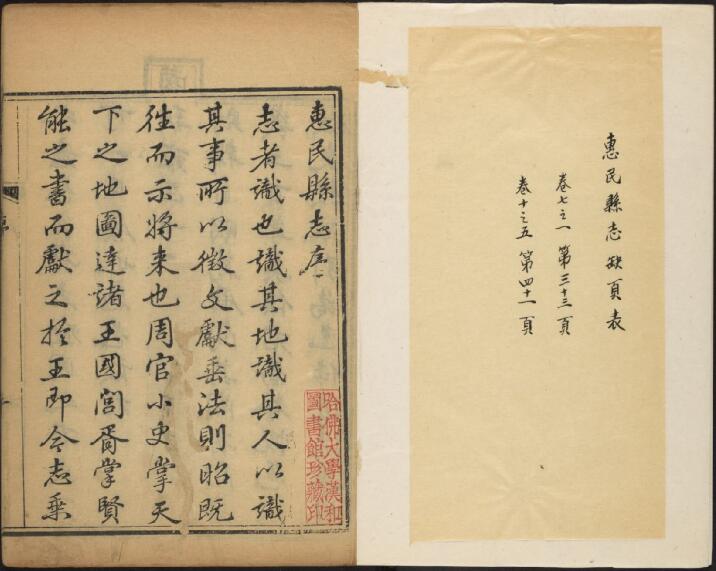 惠民縣志缺頁表
卷七之一 第三十三頁
卷十之五 第四十一頁
惠民縣志序
志者識也識其地識其人以識
其事所以徵文獻垂法則昭既
徃而示將来也周官小史掌天
下之地圖達諸王國閭胥掌賢
能之書而獻之於王即今志乗
哈佛大學漢和
圖書館珍藏印